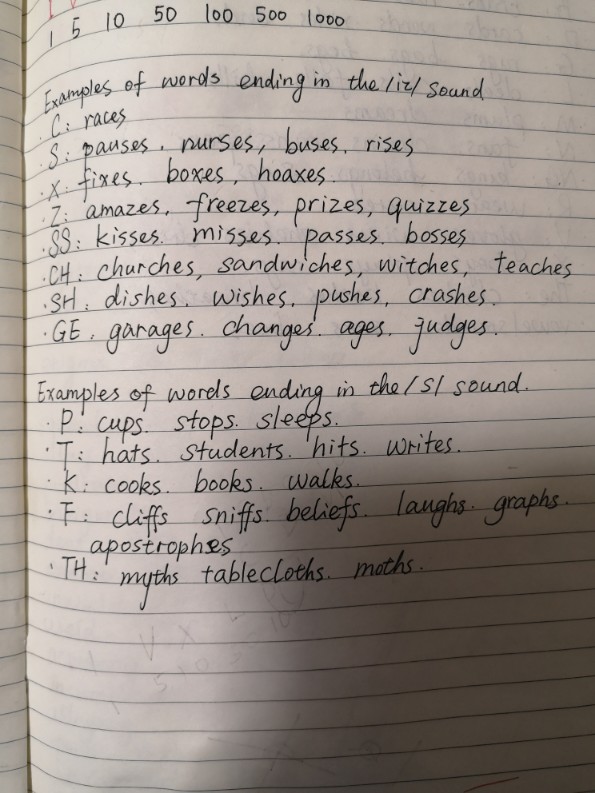 1 5 10 50 100 500 1000
Examples of words ending in the /iz/ sound
· C: races
· S: pauses. nurses, buses. rises
· X: fixes. boxes, hoaxes
· Z: amazes, freezes, prizes, quizzes
· SS: kisses. misses. passes. bosses
· CH: churches, sandwiches, witches, teaches
· SH: dishes. wishes. pushes, crashes.
· GE: garages. changes. ages. judges.
Examples of words ending in the /s/ sound.
· P: cups. stops. sleeps.
· T: hats. students. hits. writes.
· K: cooks. books. walks.
· F: cliffs sniffs. beliefs. laughs. graphs.
apostrophes
· TH: myths tablecloths. moths.